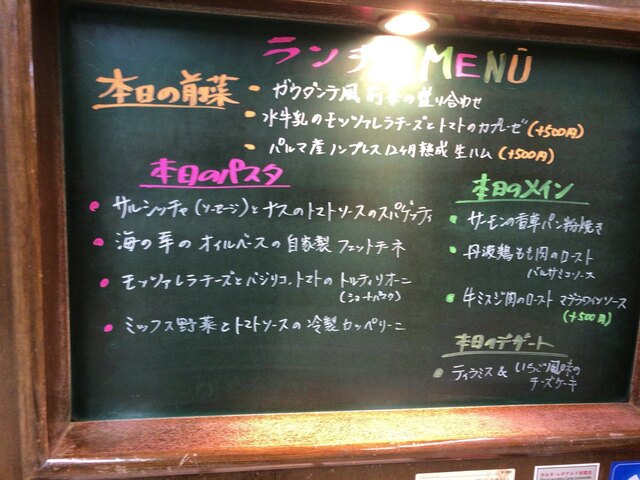 ランチ MENŪ
本日の前菜
• ガウダンテ風 の盛り合わせ
• 水牛乳のモッツァレラチーズとトマトのカプレーゼ (+500円)
• パルマ産ノンプレス12ヶ月熟成生ハム (+500円)
本日のパスタ
• サルシッチャ(ソーセージ)とナスのトマトソースのスパゲッティ
• 海の幸のオイルベースの自家製フェットチーネ
• モッツァレラチーズとバジリコ、トマトのトルティリオーニ
(ショートパスタ)
• ミックス野菜とトマトソースの冷製カッペリーニ
本日のメイン
• サーモンの香草パン粉焼き
• 丹波鶏もも肉のロースト
バルサミコソース
• 牛ミスジ肉のロースト マデラワインソース
(+500円)
本日のデザート
• ティラミス & いちご風味の
チーズケーキ